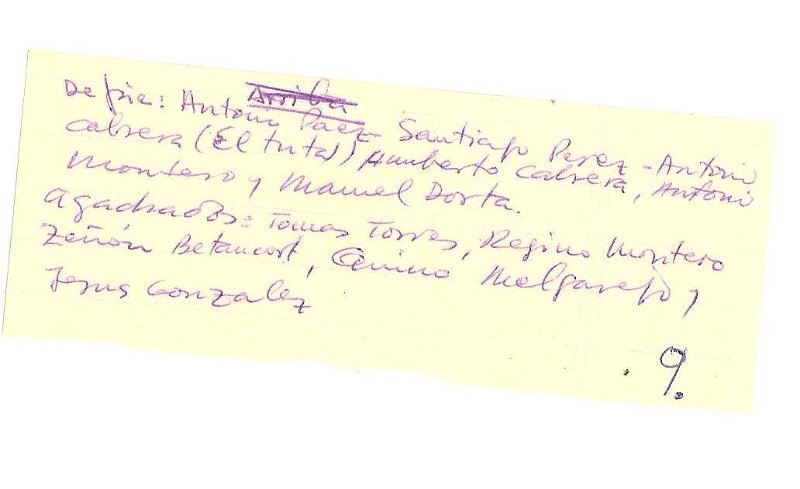 Arriba
De pie: Antonio Paez - Santiago Perez - Antonio
Cabrera (El tuta) Humberto Cabrera, Antonio
Montero y Manuel Dorta.
Agachados: Tomas Torres, Regino Montero
Zenón Betancort, Melgarejo y
Jesus Gonzalez
. 9.